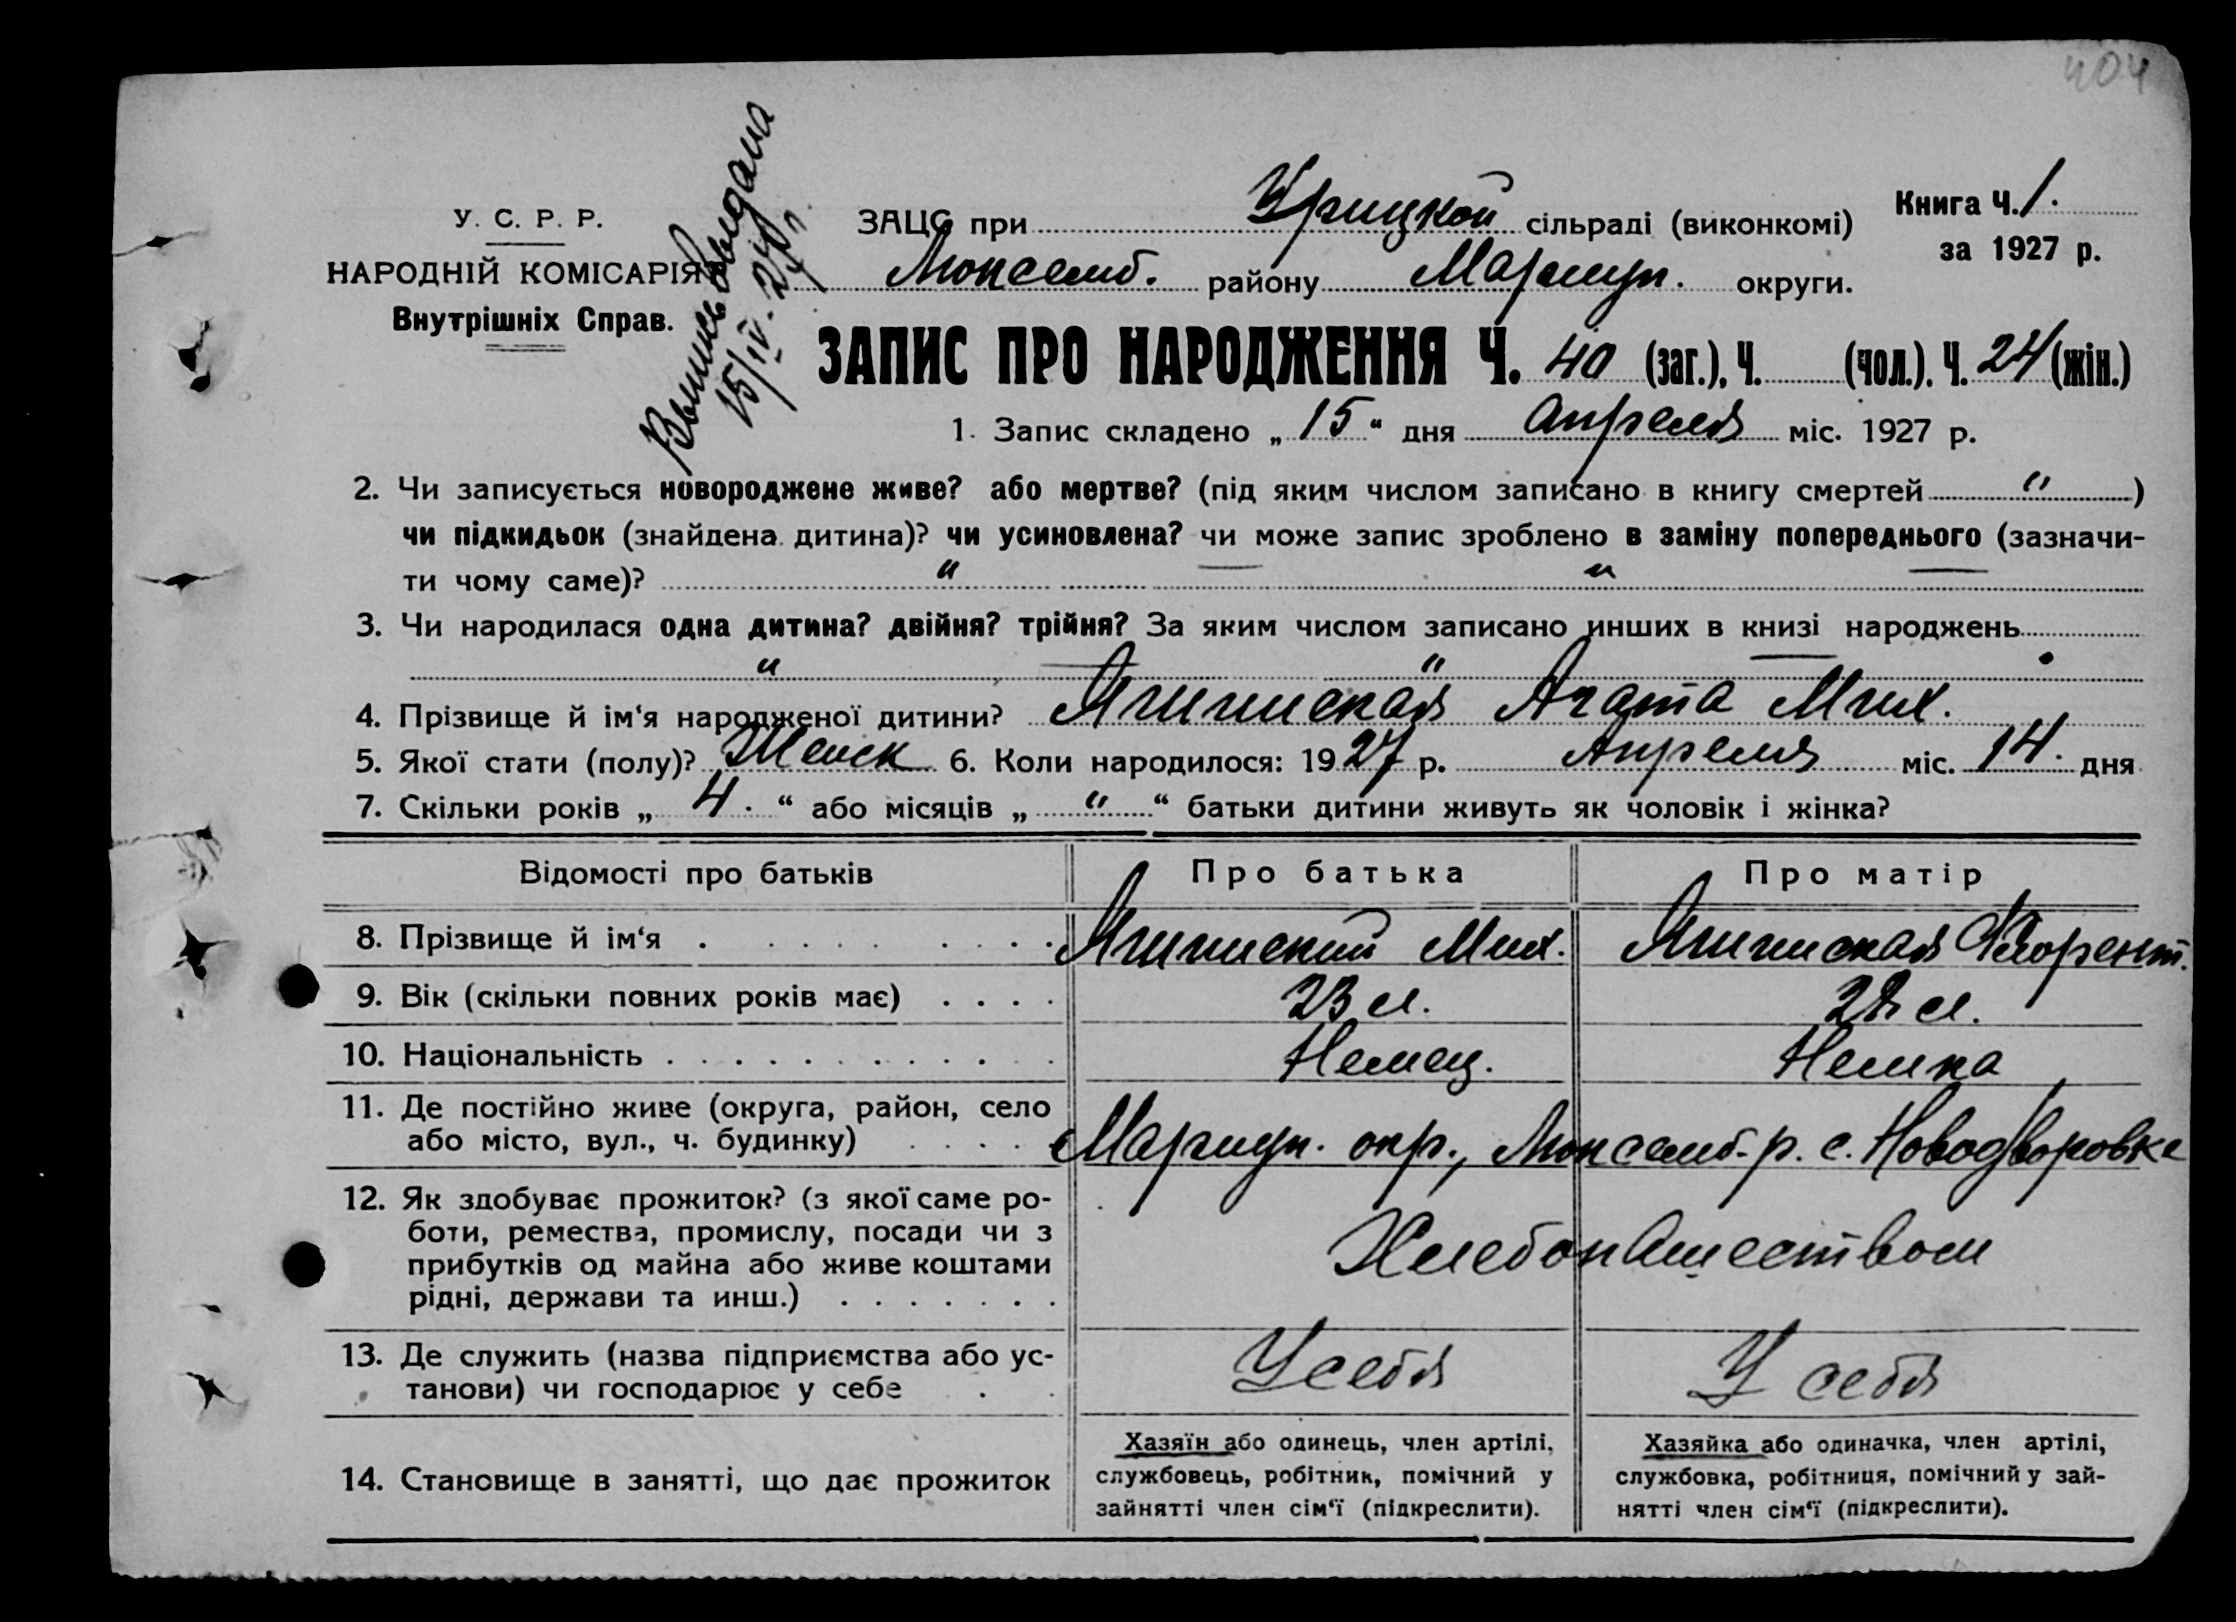 404
Выпись выдана
15/IV-27 г.
У. С. Р. Р.
НАРОДНІЙ КОМІСАРІЯ
Внутрішніх Справ.
ЗАЦС при Урицкой сільраді (виконкомі)
Люксемб. района Мариуп. округи.
Книга Ч. 1.
за 1927 р.
ЗАПИС ПРО НАРОДЖЕННЯ Ч. 40 (заг.), Ч. (чол.). Ч. 24 (жін.)
1. Запис складено „ 15 “ дня Апреля міс. 1927 р.
2. Чи записується новороджене живе? або мертве? (під яким числом записано в книгу смертей " )
чи підкидьок (знайдена дитина)? чи усиновлена? чи може запис зроблено в заміну попереднього (зазначи-
ти чому саме)? " "
3. Чи народилася одна дитина? двійня? трійня? За яким числом записано инших в книзі народжень
" "
4. Прізвище й ім‘я народженої дитини? Агата Мих.
5. Якої стати (полу)? Женск 6. Коли народилося: 1927 р. Апреля міс. 14. дня
7. Скільки років „ 4. “ або місяців „ " “ батьки дитини живуть як чоловік і жінка?
Відомості про батьків Про батька Про матір
8. Прізвище й ім‘я . . . . . Мих. Флорент.
9. Вік (скільки повних років має) . . . . 23 л. 28 л.
10. Національність . . . . . . . . . . . . Немец. Немка
11. Де постійно живе (округа, район, село
або місто, вул., ч. будинку) . . . . Мариуп. окр., Люксемб. р. с. Новодворовке
12. Як здобуває прожиток? (з якої саме ро-
боти, ремества, промислу, посади чи з
прибутків од майна або живе коштами
рідні, держави та инш.) . . . . . . . Хлебопашеством
13. Де служить (назва підприємства або ус-
танови) чи господарює у себе . . У себя У себя
14. Становище в занятті, що дає прожиток
Хазяїн або одинець, член артілі,
службовець, робітник, помічний у
зайнятті член сім‘ї (підкреслити).
Хазяйка або одиначка, член артілі,
службовка, робітниця, помічний у зай-
нятті член сім‘ї (підкреслити).